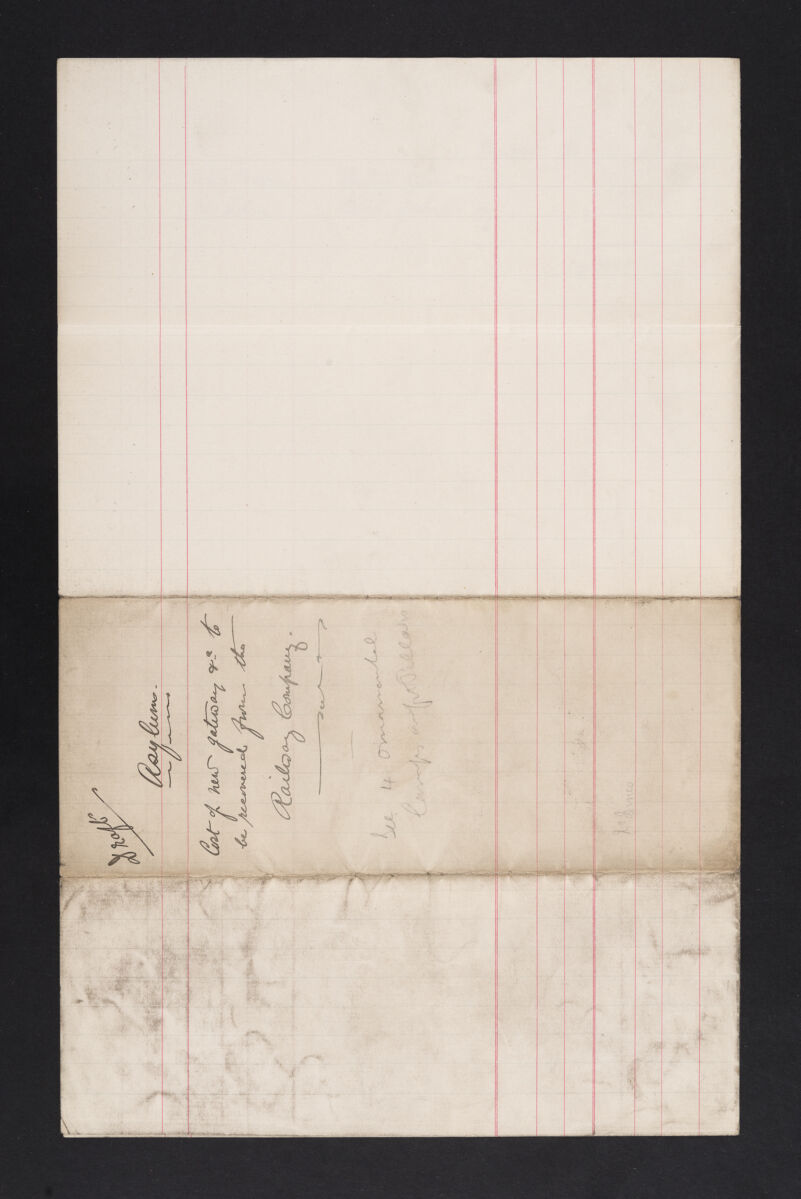 Draft
Asylum.
Cost of new gateway &c to
be recovered from the
Railway Company.
See 4 ornamental
Lamps on Pillars